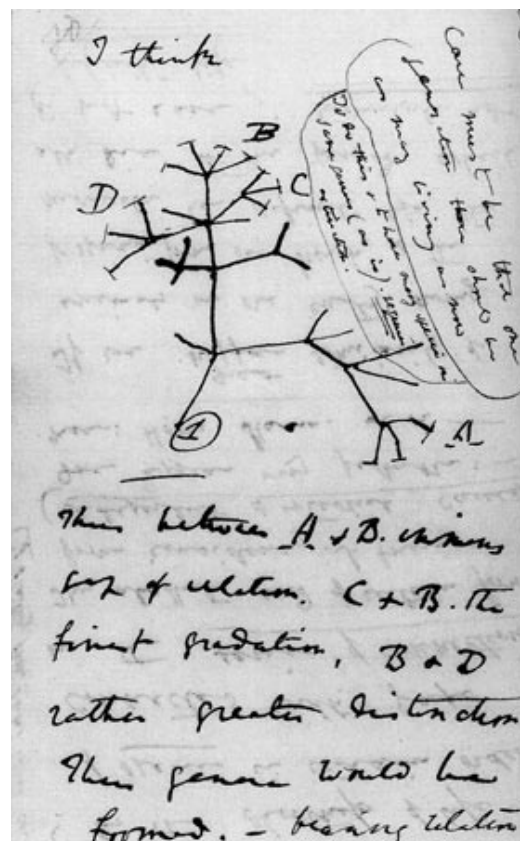 I think
Case must be that one
generation then should be
as many living as now
To do this & to have many species in
same genus (as is) requires
extinction.
B
D
C
A
1
Thus between A & B. immens
gap of relation. C & B. the
finest gradation, B & D
rather greater distinction
Thus genera would be
formed. – bearing relation